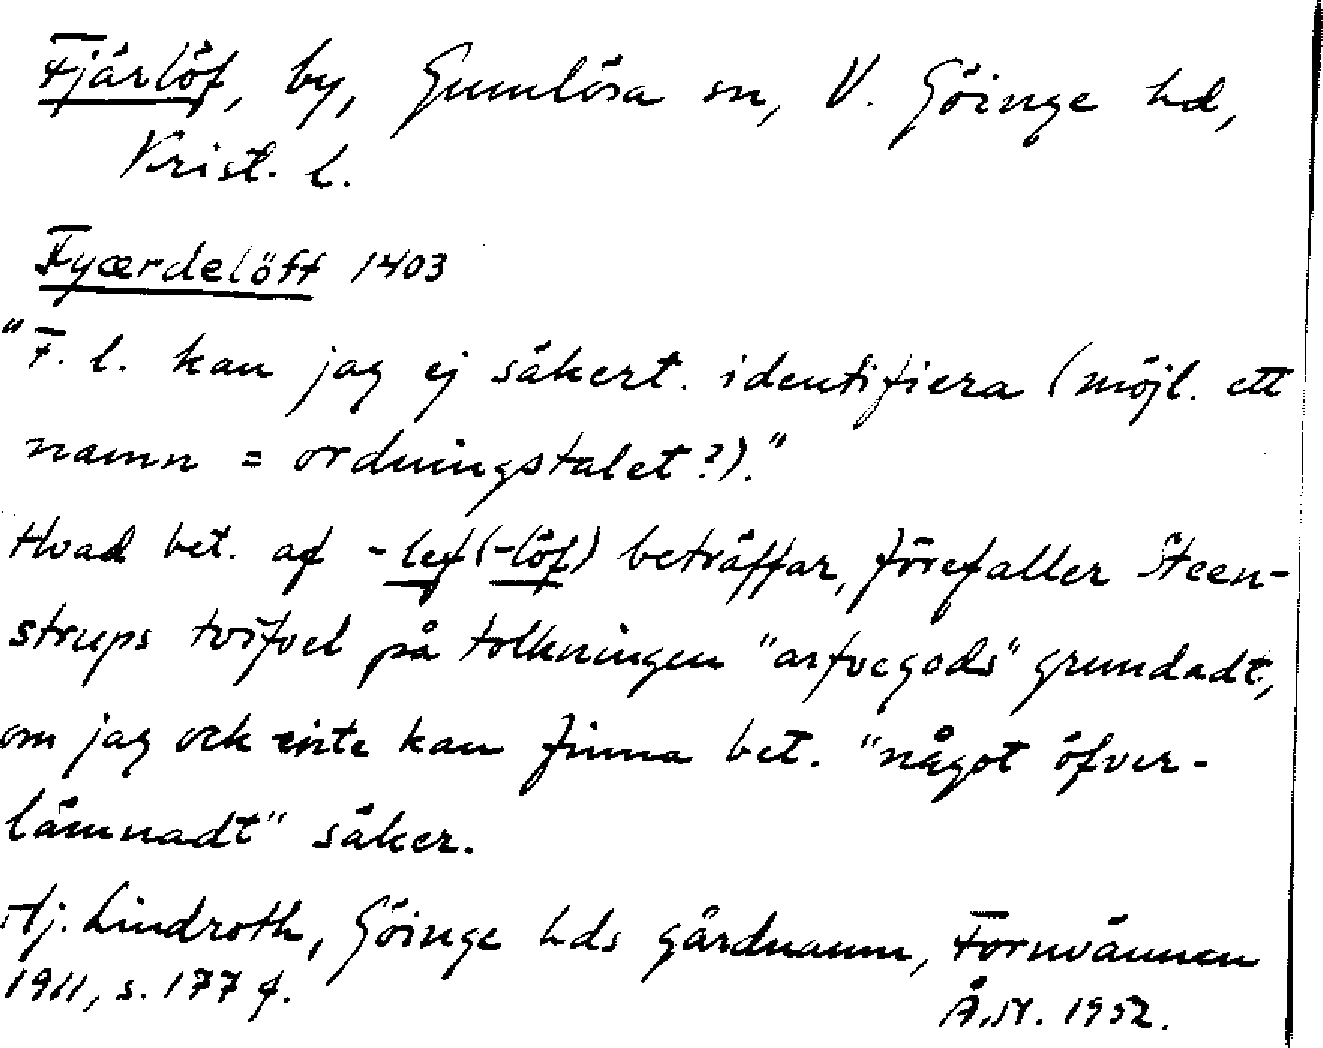 Fjärlöf, by, Gumlösa sn, V. Göinge hd,
Krist. l.
Fyærdelöff 1403
"F. l. kan jag ej säkert identifiera (möjl. ett
namn = ordningstalet?)."
Hvad bet. af -lef(-löf) beträffar, förefaller Steen-
strups tvifvel på tolkningen "arfvegods" grundadt,
om jag ock inte kan finna bet. "något öfver-
lämnadt" säker.
Hj. Lindroth, Göinge hds gårdnamn, Fornvännen
1911, s. 177 f.
1952.